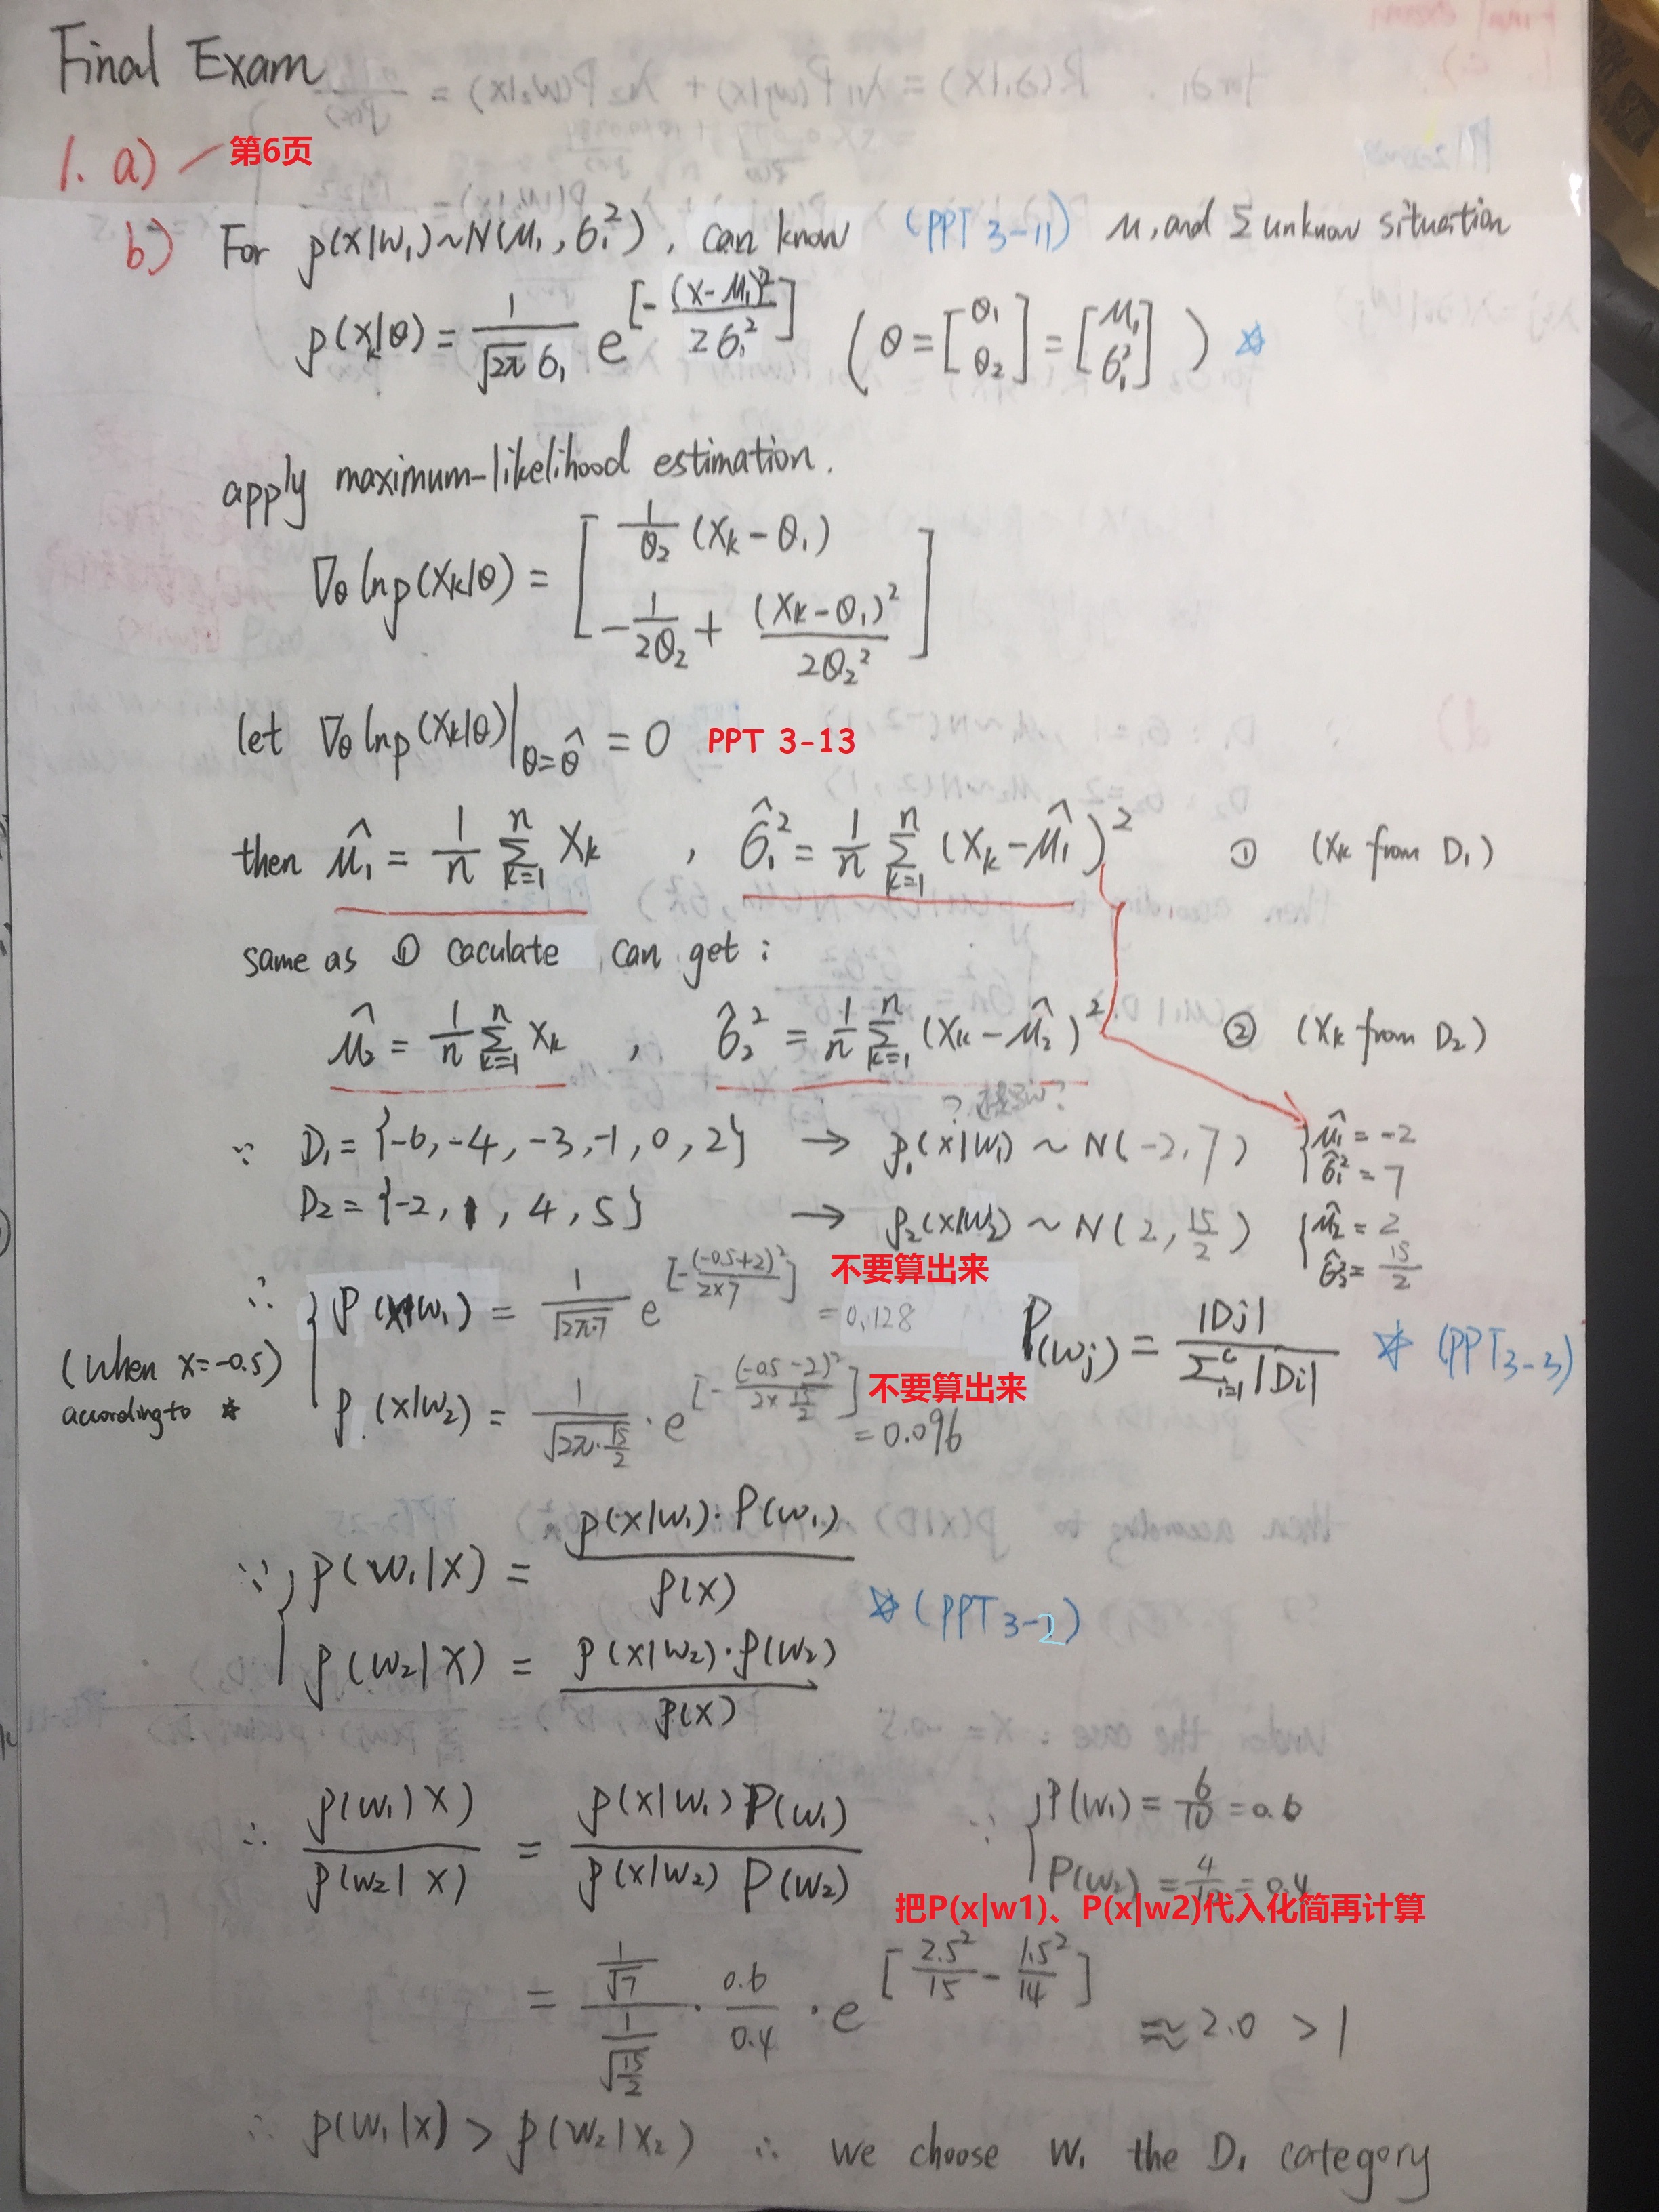 Final Exam
1. a) — 第6页
b) For p(x|w₁)~N(μ₁, σ₁²), can know (PPT 3-11) μ, and Σ unknow situation
p(xₖ|θ) = 1/(√2π σ₁) e^[-(x-μ₁)²/2σ₁²] (θ = [θ₁ θ₂] = [μ₁ σ₁²]) ☆
apply maximum-likelihood estimation.
∇θ ln p(xₖ|θ) = [ 1/θ₂ (xₖ - θ₁)
-1/2θ₂ + (xₖ-θ₁)²/2θ₂² ]
let ∇θ ln p(xₖ|θ)|θ=θ̂ = 0 PPT 3-13
then μ̂₁ = 1/n Σₖ₌₁ⁿ xₖ , σ̂₁² = 1/n Σₖ₌₁ⁿ (xₖ-μ̂₁)² ① (xₖ from D₁)
same as ① caculate can get :
μ̂₂ = 1/n Σₖ₌₁ⁿ xₖ , σ̂₂² = 1/n Σₖ₌₁ⁿ (xₖ-μ̂₂)² ② (xₖ from D₂)
∵ D₁ = {-6, -4, -3, -1, 0, 2} → p₁(x|w₁) ~ N(-2, 7) { μ̂₁ = -2
σ̂₁² = 7
D₂ = {-2, 1, 4, 5} → p₂(x|w₂) ~ N(2, 15/2) { μ̂₂ = 2
σ̂₂² = 15/2
∴ { p(x|w₁) = 1/√2π·7 e^[-(-0.5+2)²/2×7] = 0.128 不要算出来
P(wⱼ) = |Dj| / Σᶜᵢ₌₁|Di| ☆ (PPT 3-3)
(when x=-0.5)
according to ☆
p(x|w₂) = 1/√2π·15/2 · e^[-(-0.5-2)²/2×15/2] = 0.096 不要算出来
∵ { p(w₁|x) = p(x|w₁)·P(w₁) / p(x)
☆ (PPT 3-2)
p(w₂|x) = p(x|w₂)·p(w₂) / p(x)
∴ p(w₁|x) / p(w₂|x) = p(x|w₁) P(w₁) / p(x|w₂) P(w₂) ∵ { P(w₁) = 6/10 = 0.6
P(w₂) = 4/10 = 0.4
把P(x|w1)、P(x|w2)代入化简再计算
= (1/√7) / (1/√15/2) · 0.6/0.4 · e^[2.5²/15 - 1.5²/14] ≈ 2.0 > 1
∴ p(w₁|x) > p(w₂|x₂) ∴ we choose w₁ the D₁ category